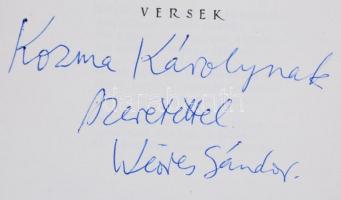 VERSEK
Kozma Károlynak
szeretettel
Weöres Sándor.